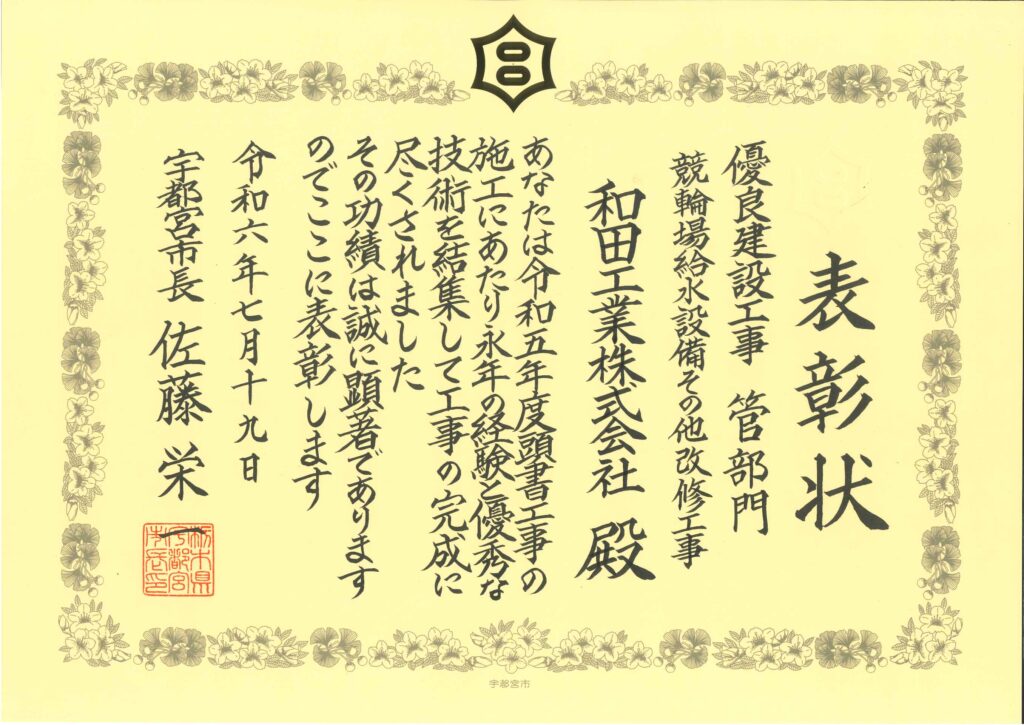 表彰状
優良建設工事 管部門
競輪場給水設備その他改修工事
和田工業株式会社 殿
あなたは令和五年度頭書工事の
施工にあたり永年の経験と優秀な
技術を結集して工事の完成に
尽くされました
その功績は誠に顕著であります
のでここに表彰します
令和六年七月十九日
宇都宮市長 佐藤栄一
栃木県
宇都宮
市長印
宇都宮市